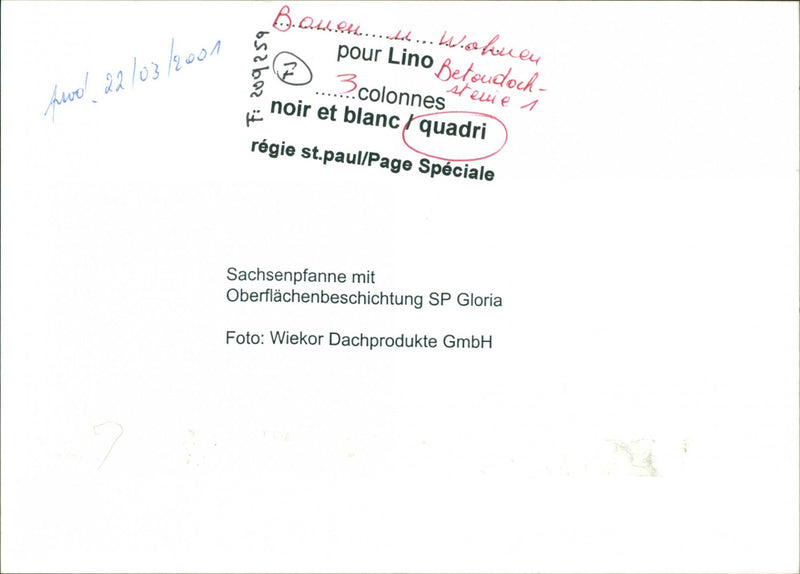 prod. 22/03/2001
Bauen u Wohnen
pour Lino
Betondach-
steine 1
F: 209259
7
3 colonnes
noir et blanc / quadri
régie st.paul/Page Spéciale
Sachsenpfanne mit
Oberflächenbeschichtung SP Gloria
Foto: Wiekor Dachprodukte GmbH